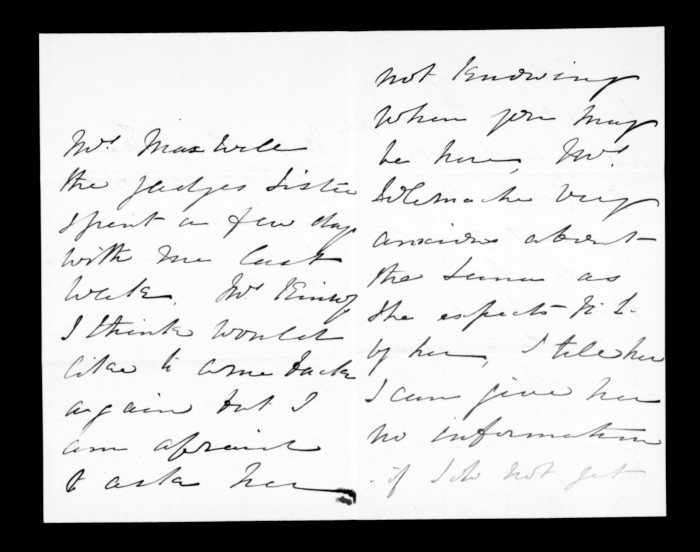 Mrs Maxwell
the judges sister
spent a few days
with me last
week. Mrs King
I think would
like to come back
again but I
am afraid
to ask her
not knowing
when you may
be here, Mrs
very
anxious about
the same as
she expects to L.
by her, I tell her
I can give her
no information
if I do not get